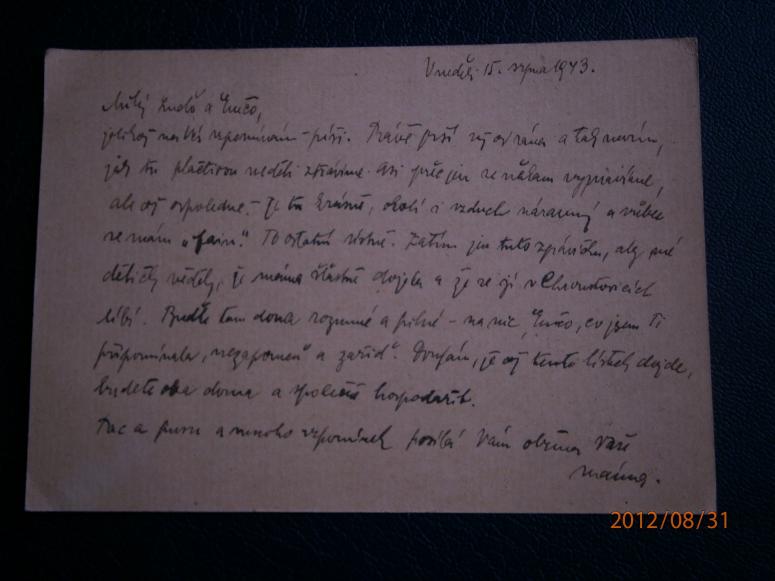 V neděli 15. srpna 1943.
Milý Ludo a Evčo,
jelikož na Vás vzpomínám - píši. Právě prší už od rána a tak nevím,
jak tu plačtivou neděli ztrávíme. Asi přec jen se někam vypravíme,
ale až odpoledne. - Je tu krásně, okolí i vzduch náramný a vůbec
se mám „fain". To ostatní ústně. Zatím jen tuto zprávičku, aby mé
dětičky věděly, že máma šťastně dojela a že se jí v Chroustovicích
líbí. Buďte tam doma rozumné a pilné - na nic, Evčo, co jsem Ti
připomínala, „nezapomeň a zařiď". Doufám, že až tento lístek dojde,
budete oba doma a společně hospodařit.
Pac a pusu a mnoho vzpomínek posílá Vám oběma Vaše
máma.
2012/08/31